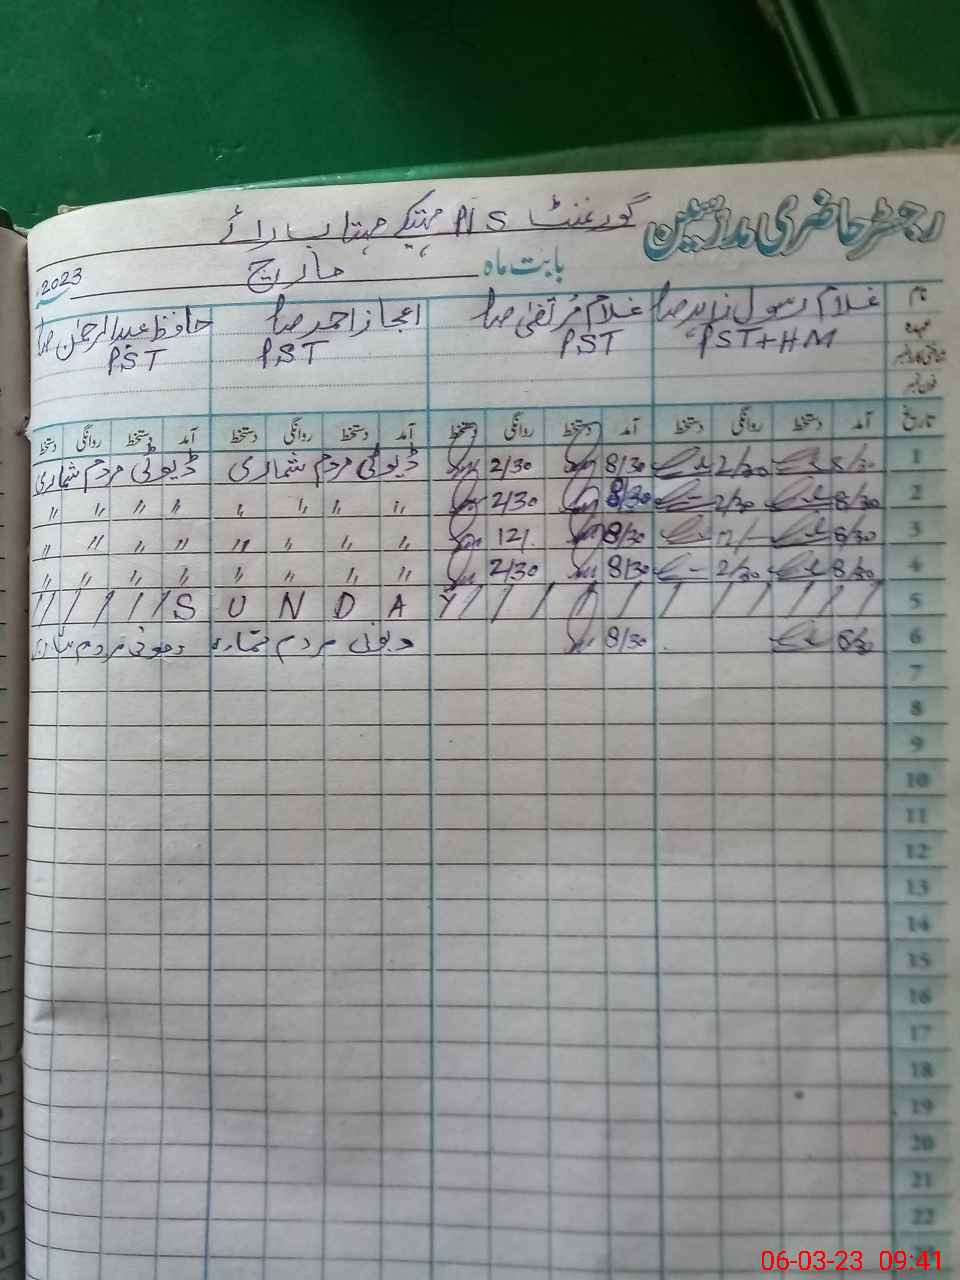 رجسٹر حاضری مدرسین گورنمنٹ P/S مہتاب رائے
بابت ماہ مارچ 2023
نام غلام رسول زاہد صا غلام مرتضیٰ صا اعجاز احمد صا حافظ عبدالرحمٰن صا
عہدہ PST+HM PST PST PST
شناختی کارڈ نمبر
فون نمبر
تاریخ آمد دستخط روانگی دستخط آمد دستخط روانگی دستخط آمد دستخط روانگی دستخط آمد دستخط روانگی دستخط
1 8/30 2/30 8/30 2/30 ڈیوٹی مردم شماری ڈیوٹی مردم شماری
2 8/30 2/30 8/30 2/30 〃 〃 〃 〃 〃 〃 〃 〃
3 8/30 12/ 8/30 12/ 〃 〃 〃 〃 〃 〃 〃 〃
4 8/30 2/30 8/30 2/30 〃 〃 〃 〃 〃 〃 〃 〃
5 / / / / S U N D A Y / / / / / / / /
6 8/30 8/30 ڈیوٹی مردم شماری ڈیوٹی مردم شماری
7
8
9
10
11
12
13
14
15
16
17
18
19
20
21
22
06-03-23 09:41